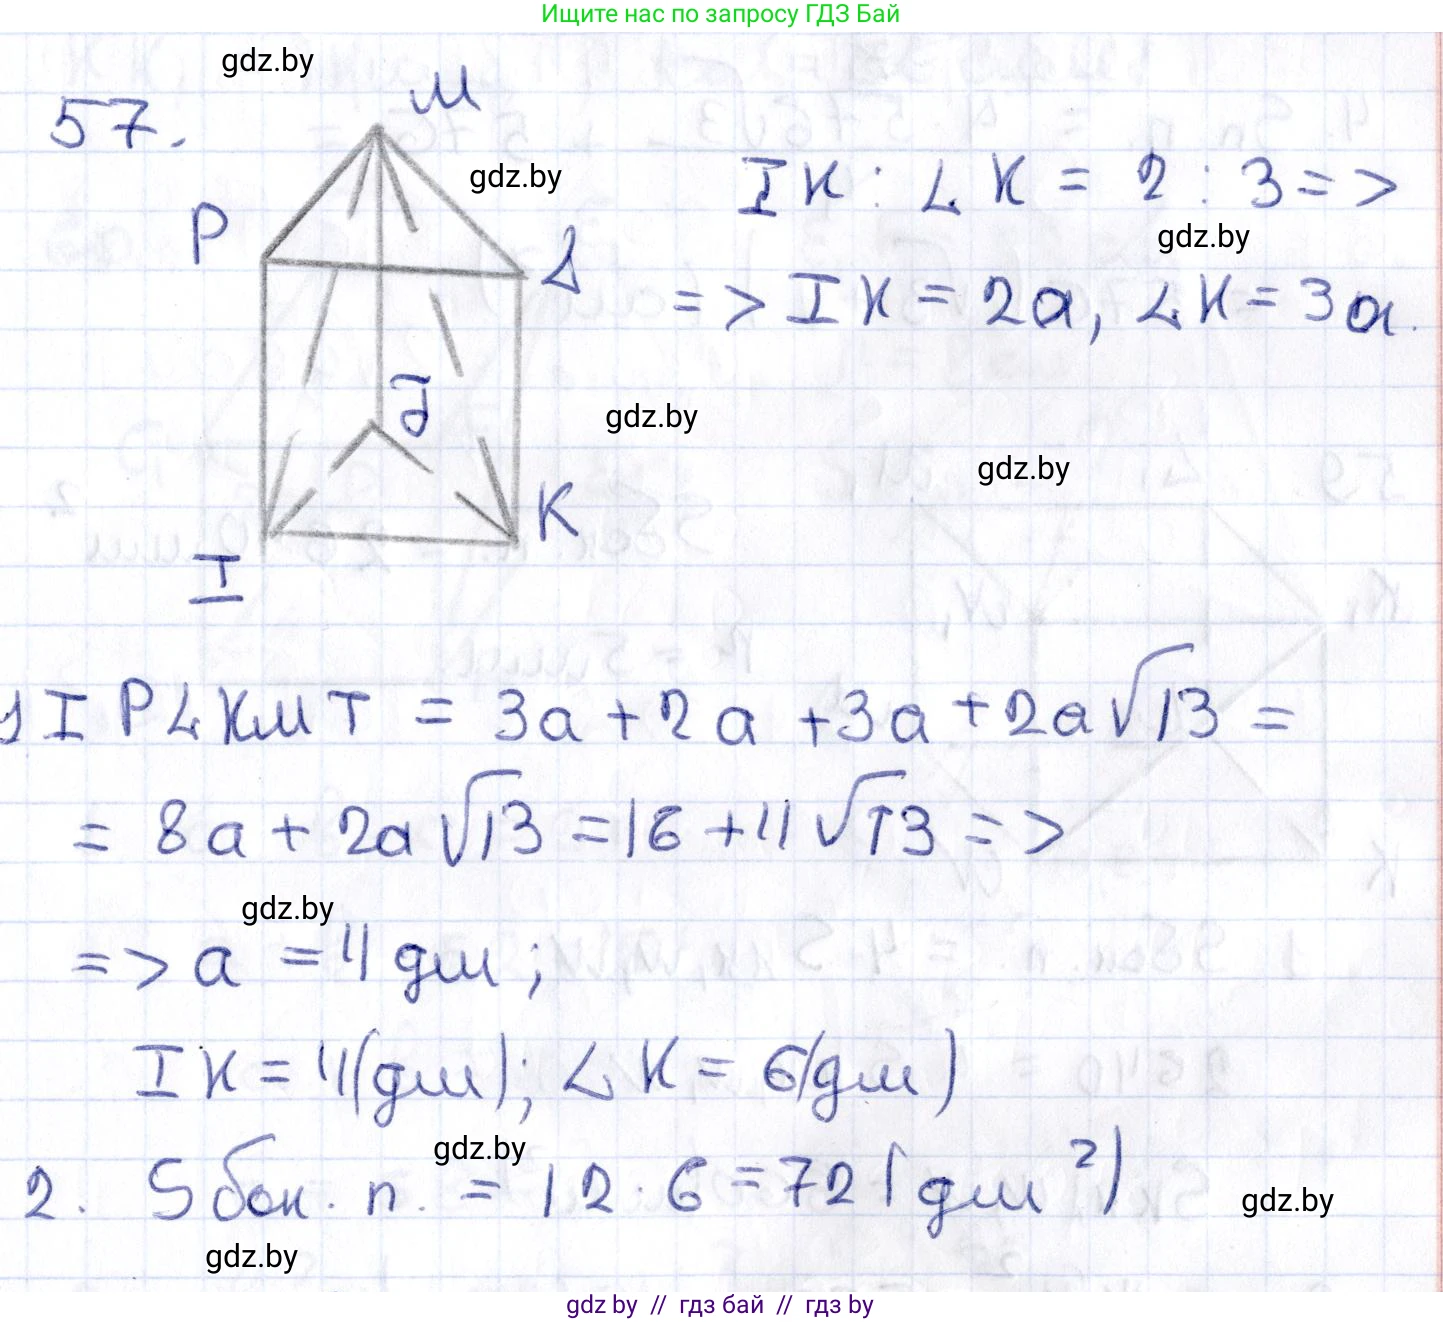 Ищите нас по запросу ГДЗ Бай
gdz.by
57.
M
gdz.by
P
IK : LK = 2 : 3 =>
gdz.by
=> IK = 2a, LK = 3a.
J
gdz.by
gdz.by
K
I
1 IPLKMT = 3a + 2a + 3a + 2a√13 =
= 8a + 2a√13 = 16 + 4√13 =>
gdz.by
=> a = 4 дм;
IK = 4(дм); LK = 6(дм)
gdz.by
2. Sбок. п. = 12 · 6 = 72 (дм²)
gdz.by
gdz.by
gdz by // гдз бай // гдз by